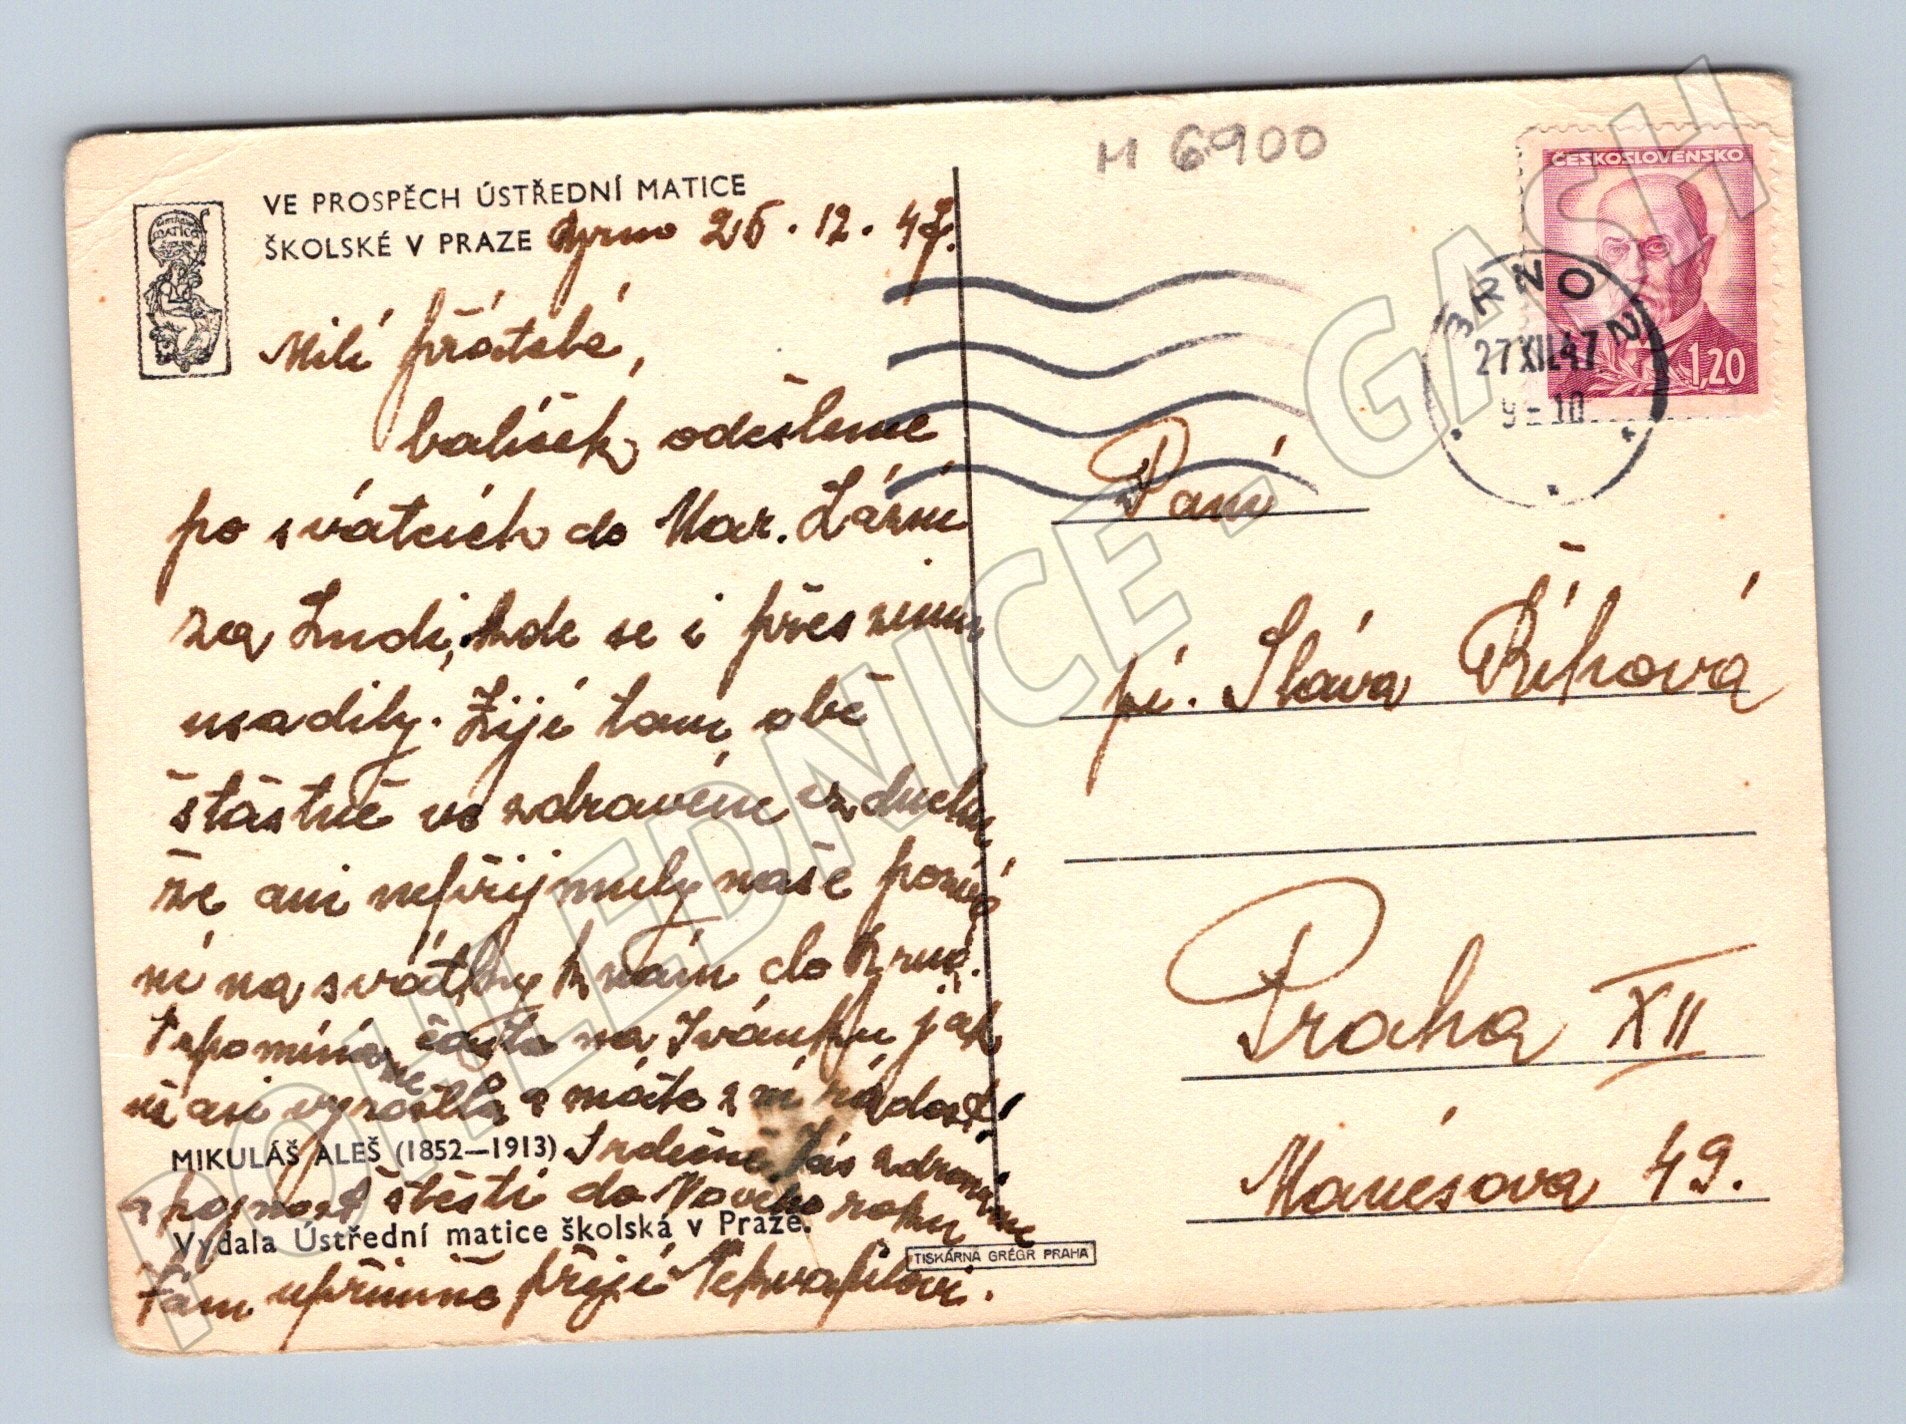 VE PROSPĚCH ÚSTŘEDNÍ MATICE
ŠKOLSKÉ V PRAZE
MATICE
Brno 26.12.47.
Milí přátelé,
balíček odešleme
po svátcích do Mar. Lázní
za Lndi, kde se i přes zimu
usadily. Žijí tam obě
šťastně ve zdravém vzduchu
že ani nepřijmuly naše pozvá
ní na svátky k nám do Brna.
Vzpomínáme často na Ivánku jak
už asi vyrostla a máte z ní radost,
MIKULÁŠ ALEŠ (1852—1913) Srdečně Vás zdravíme
a hojnost štěstí do Nového roku
Vydala Ústřední matice školská v Praze.
Vám upřímně přejí
TISKÁRNA GRÉGR PRAHA
M 6900
ČESKOSLOVENSKO
1,20
BRNO 2
27 XII.47
9-10
Paní
pí. Sláva Říhová
Praha XII
Manesova 49.
POHLEDNICE - GASH